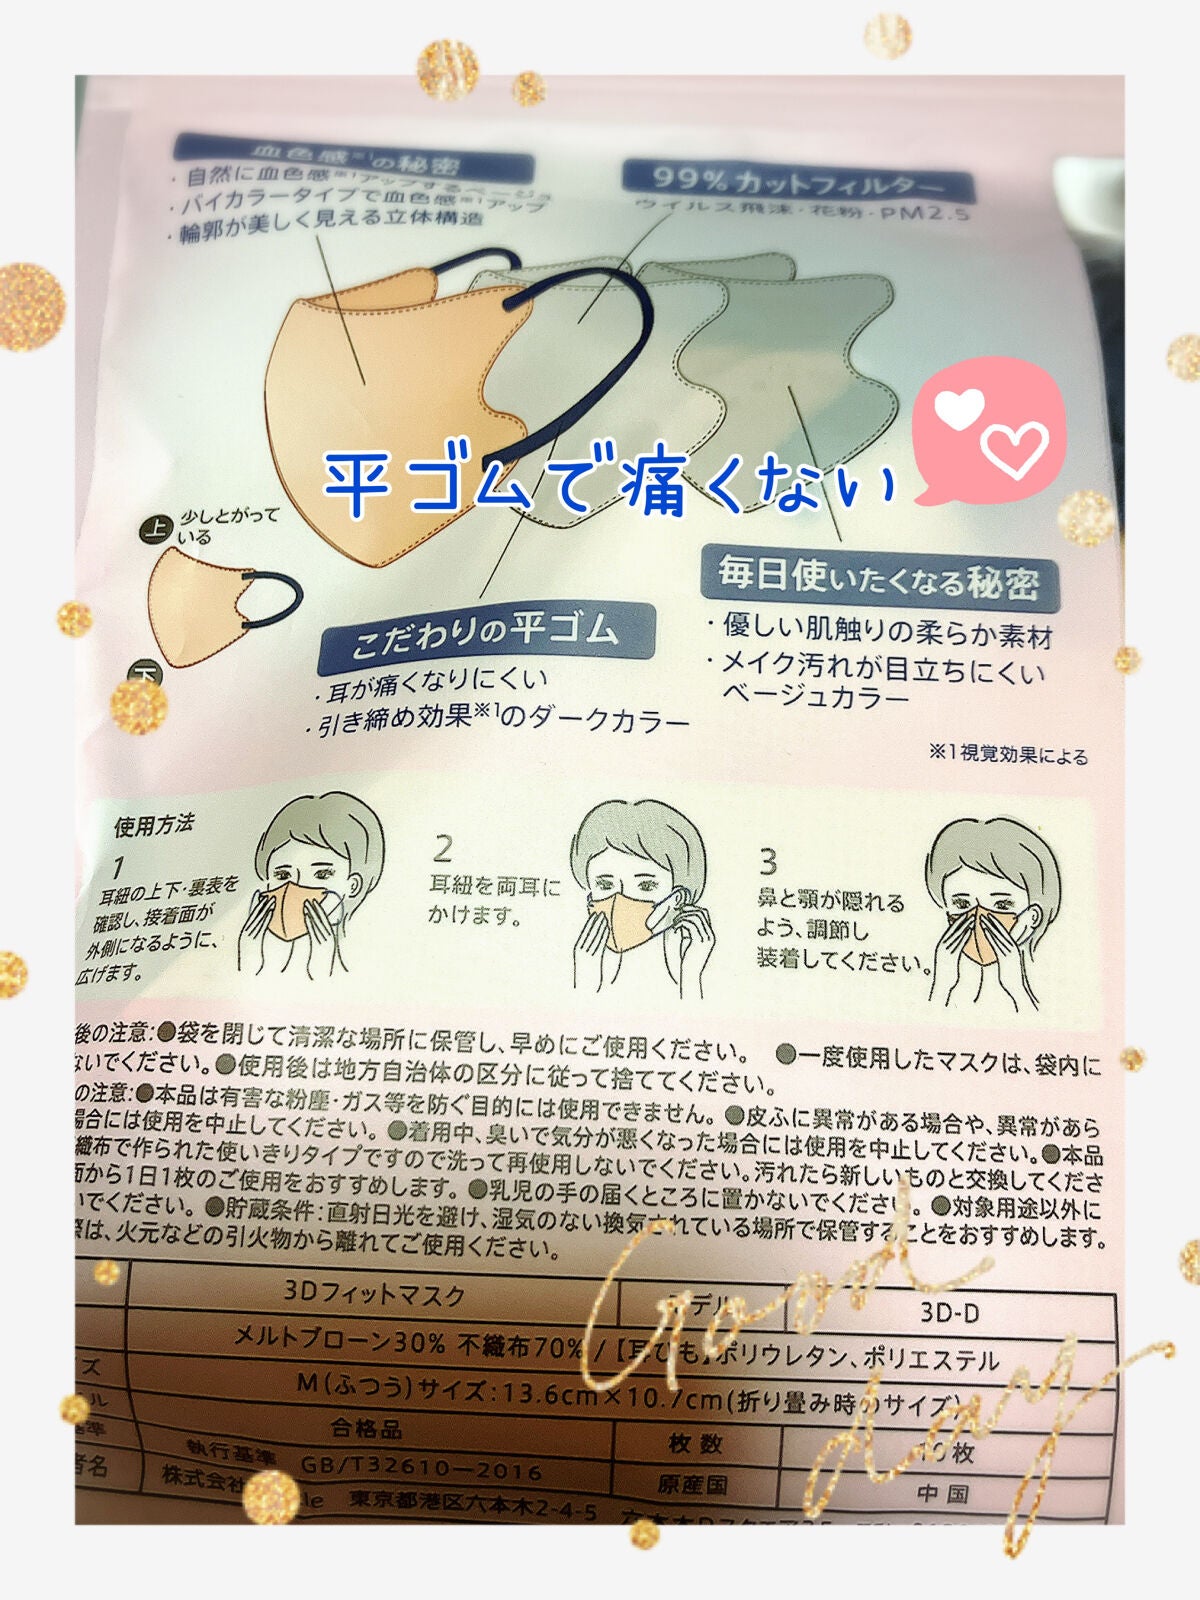 血色感※1の秘密
・自然に血色感※1アップするベージュ
・バイカラータイプで血色感※1アップ
・輪郭が美しく見える立体構造
99%カットフィルター
ウイルス飛沫・花粉・PM2.5
平ゴムで痛くない
上 少しとがって
いる
下
こだわりの平ゴム
・耳が痛くなりにくい
・引き締め効果※1のダークカラー
毎日使いたくなる秘密
・優しい肌触りの柔らか素材
・メイク汚れが目立ちにくい
ベージュカラー
※1視覚効果による
使用方法
1
耳紐の上下・裏表を
確認し、接着面が
外側になるように、
広げます。
2
耳紐を両耳に
かけます。
3
鼻と顎が隠れる
よう、調節し
装着してください。
後の注意:●袋を閉じて清潔な場所に保管し、早めにご使用ください。 ●一度使用したマスクは、袋内に
ないでください。●使用後は地方自治体の区分に従って捨ててください。
の注意:●本品は有害な粉塵・ガス等を防ぐ目的には使用できません。●皮ふに異常がある場合や、異常があら
場合には使用を中止してください。●着用中、臭いで気分が悪くなった場合には使用を中止してください。●本品
織布で作られた使いきりタイプですので洗って再使用しないでください。汚れたら新しいものと交換してくださ
面から1日1枚のご使用をおすすめします。●乳児の手の届くところに置かないでください。●対象用途以外に
いでください。●貯蔵条件:直射日光を避け、湿気のない換気されている場所で保管することをおすすめします。
際は、火元などの引火物から離れてご使用ください。
3Dフィットマスク モデル 3D-D
メルトブローン30% 不織布70% / 【耳ひも】ポリウレタン、ポリエステル
ズ M(ふつう)サイズ:13.6cm×10.7cm(折り畳み時のサイズ)
ル 合格品 枚数 10枚
基準 執行基準 GB/T32610—2016 原産国 中国
者名 株式会社 le 東京都港区六本木2-4-5
Good
day